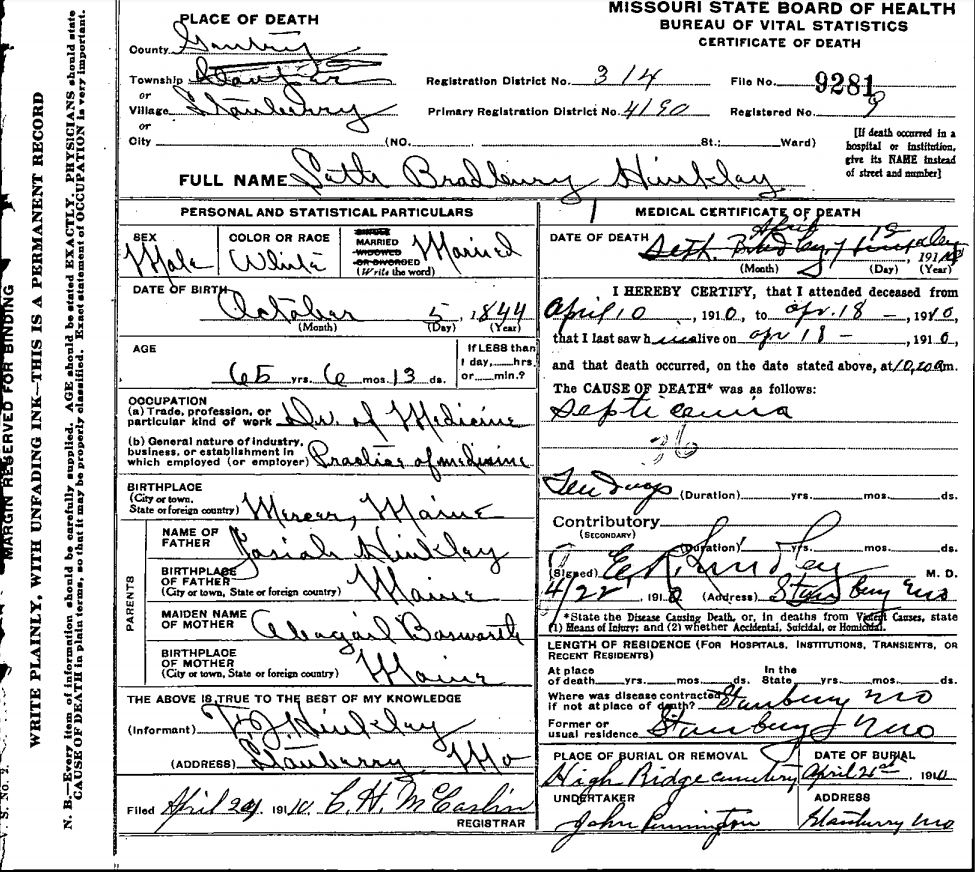 MISSOURI STATE BOARD OF HEALTH
BUREAU OF VITAL STATISTICS
CERTIFICATE OF DEATH
PLACE OF DEATH
County Gentry
Township
or
Village Stanberry
or
City (NO. St.; Ward)
Registration District No. 314
File No. 9281
Primary Registration District No. 4190
Registered No. 9
[If death occurred in a
hospital or institution,
give its NAME instead
of street and number]
FULL NAME Seth Bradbury Hinkley
PERSONAL AND STATISTICAL PARTICULARS
SEX
Male
COLOR OR RACE
White
SINGLE
MARRIED
WIDOWED
OR DIVORCED
(Write the word)
Married
DATE OF BIRTH
October 5, 1844
(Month) (Day) (Year)
AGE
65 yrs. 6 mos. 13 ds.
If LESS than
1 day, hrs.
or min.?
OCCUPATION
(a) Trade, profession, or
particular kind of work Dr. of Medicine
(b) General nature of industry,
business, or establishment in
which employed (or employer) Practice of medicine
BIRTHPLACE
(City or town,
State or foreign country) Mercer, Maine
PARENTS
NAME OF
FATHER Josiah Hinkley
BIRTHPLACE
OF FATHER
(City or town, State or foreign country) Maine
MAIDEN NAME
OF MOTHER Abagail Bosworth
BIRTHPLACE
OF MOTHER
(City or town, State or foreign country) Maine
THE ABOVE IS TRUE TO THE BEST OF MY KNOWLEDGE
(Informant) Hinkley
(ADDRESS) Stanberry Mo
Filed April 191 0. C. H. McCaslin
REGISTRAR
MEDICAL CERTIFICATE OF DEATH
DATE OF DEATH
April
Seth Bradbury Hinkley 191
(Month) (Day) (Year)
I HEREBY CERTIFY, that I attended deceased from
April 10, 1910, to apr. 18 –, 1910,
that I last saw h alive on apr 18 –, 1910,
and that death occurred, on the date stated above, at m.
The CAUSE OF DEATH* was as follows:
Septicemia
36
Ten Days (Duration) yrs. mos. ds.
Contributory
(SECONDARY)
(Duration) yrs. mos. ds.
(Signed) M. D.
4/22, 1910 (Address) Mo
*State the Disease Causing Death, or, in deaths from Violent Causes, state
(1) Means of Injury; and (2) whether Accidental, Suicidal, or Homicidal.
LENGTH OF RESIDENCE (FOR HOSPITALS, INSTITUTIONS, TRANSIENTS, OR
RECENT RESIDENTS)
At place
of death yrs. mos. ds.
In the
State yrs. mos. ds.
Where was disease contracted
if not at place of death? Stanbury Mo
Former or
usual residence Stanbury Mo
PLACE OF BURIAL OR REMOVAL
High Ridge cemetery
DATE OF BURIAL
April 191
UNDERTAKER
John Pennington
ADDRESS
Stanberry Mo
MARGIN RESERVED FOR BINDING
WRITE PLAINLY, WITH UNFADING INK—THIS IS A PERMANENT RECORD
N. B.—Every item of information should be carefully supplied. AGE should be stated EXACTLY. PHYSICIANS should state
CAUSE OF DEATH in plain terms, so that it may be properly classified. Exact statement of OCCUPATION is very important.
V. S. No. 2.